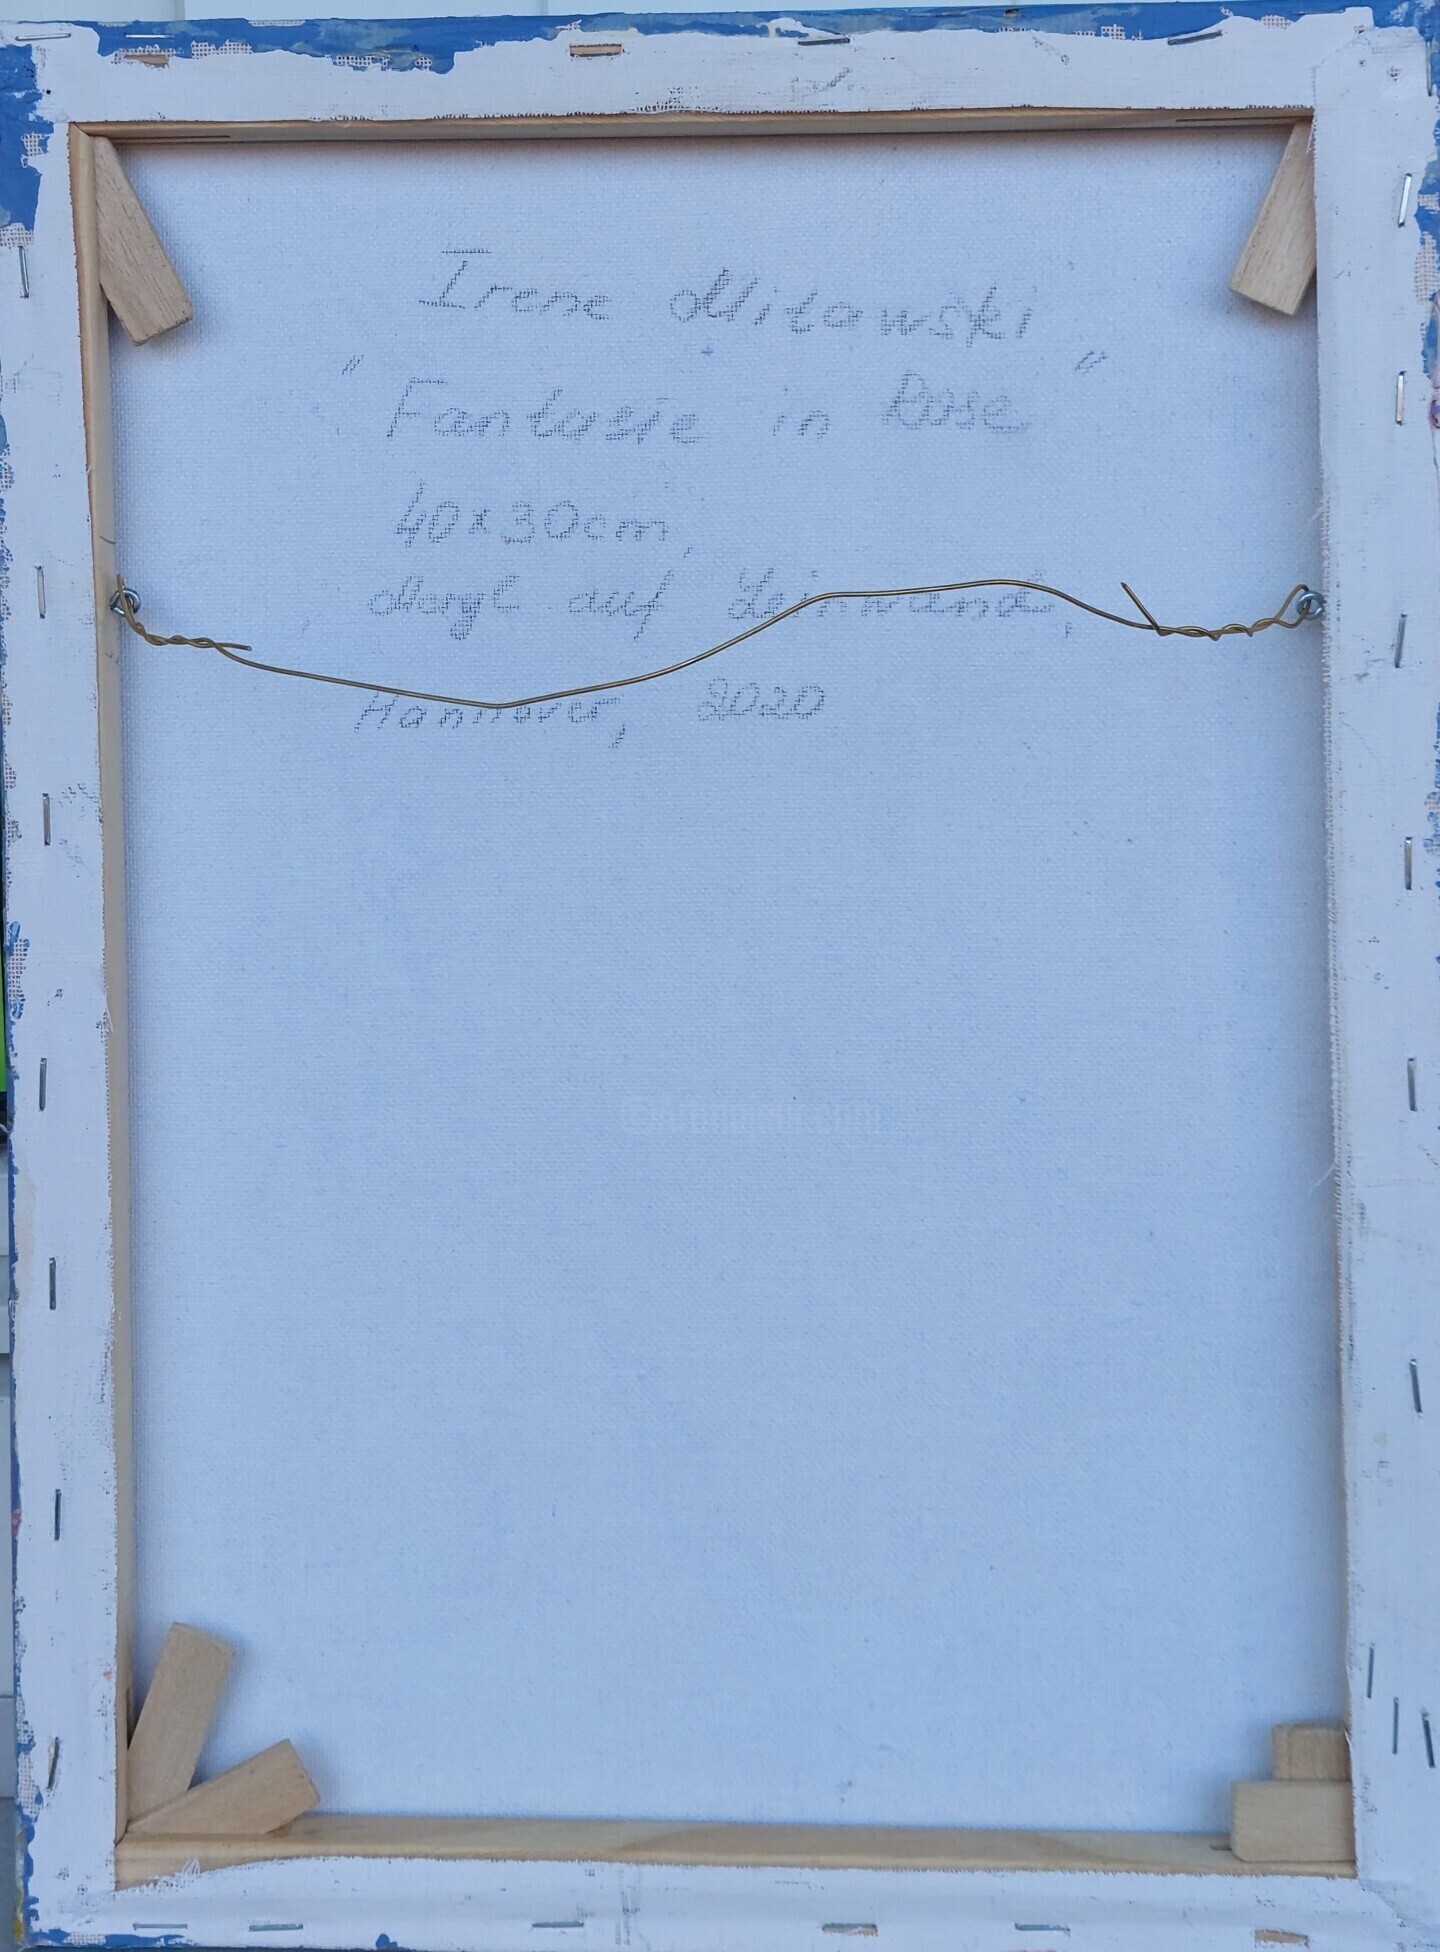 Irene Mitowski
"Fantasie in Rose"
40x30cm,
Acryl auf Leinwand,
Hannover, 2020